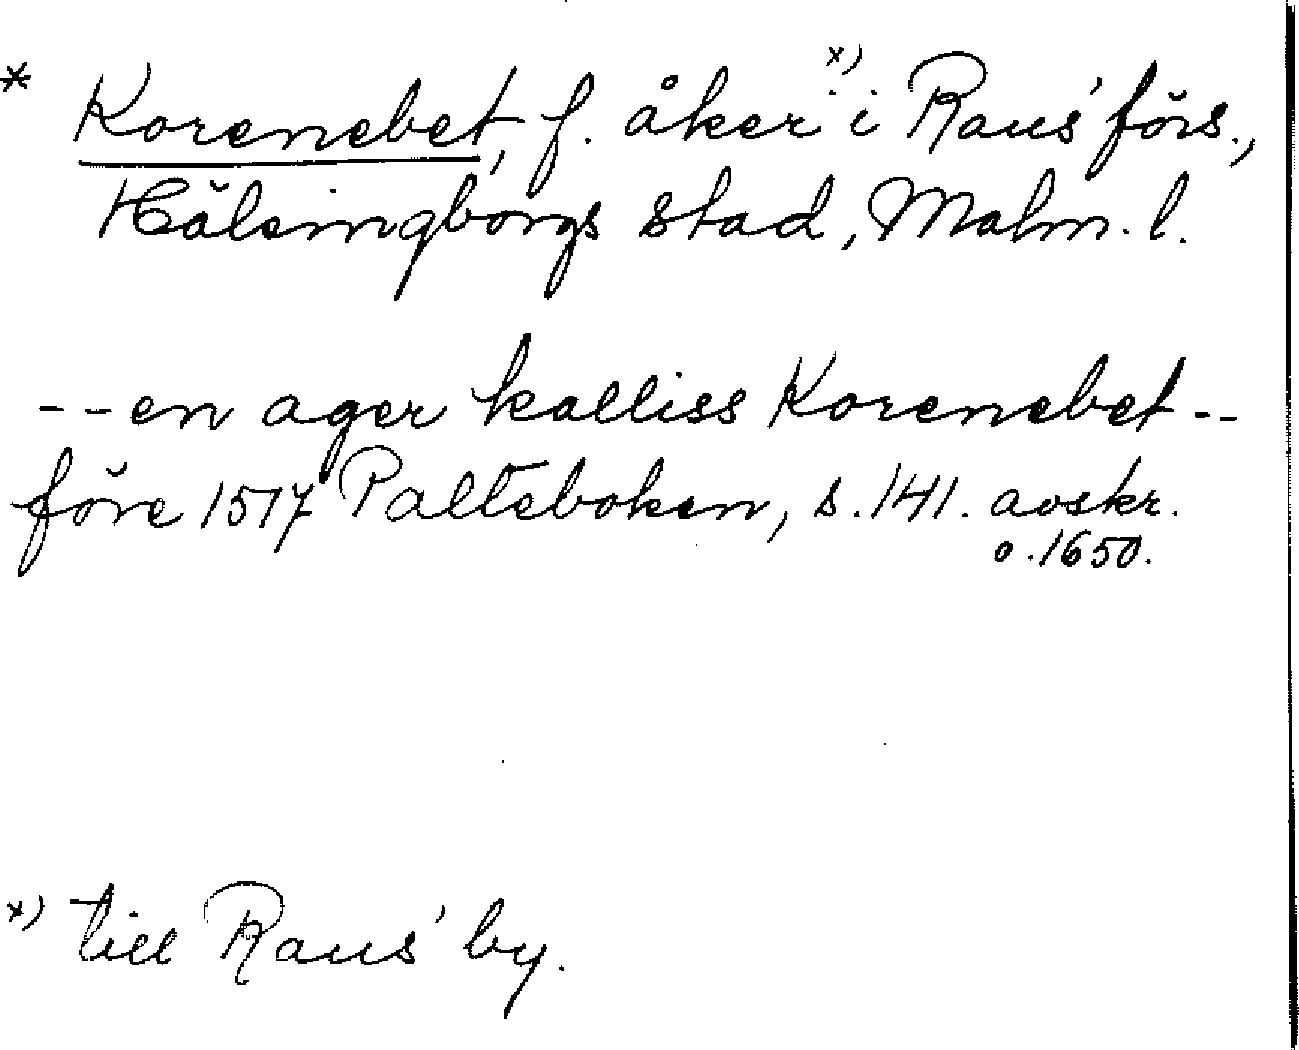 * Korenebet, f. åker x) i Raus' förs.,
Hälsingborgs stad, Malm. l.
-- en ager kalliss Korenebet --
före 1517 Palteboken, s. 141. avskr.
o. 1650.
x) till Raus' by.